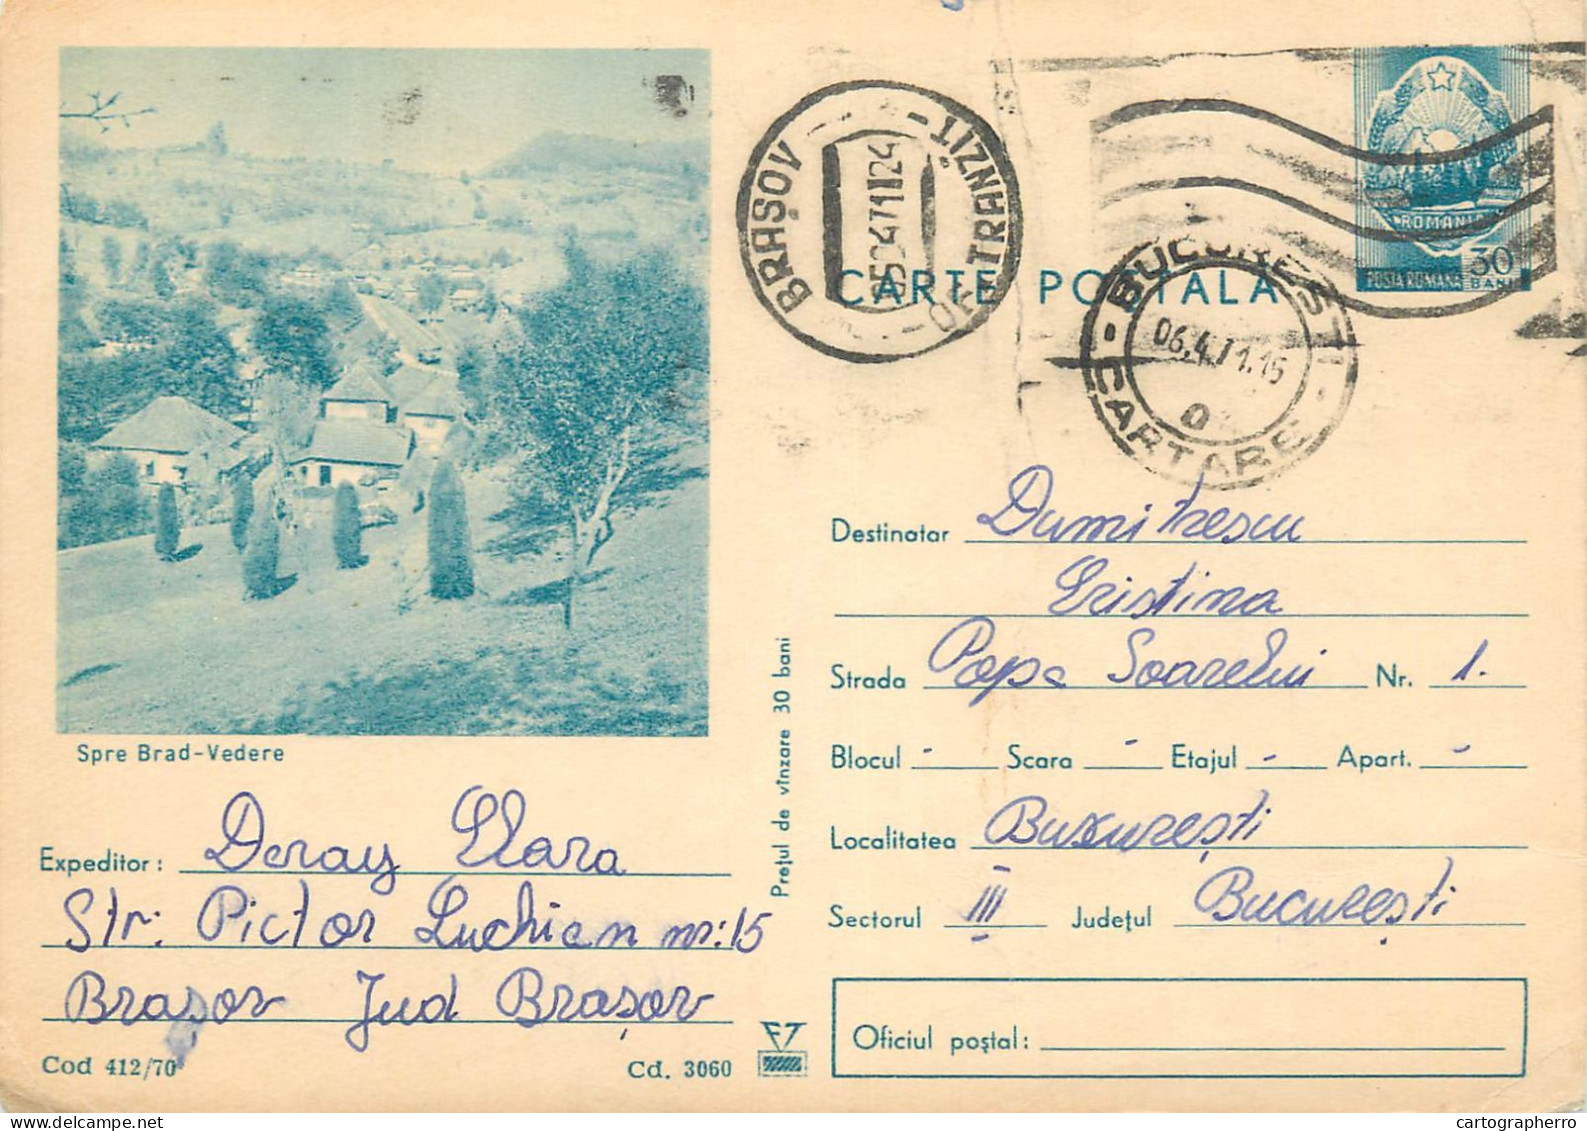 BRAȘOV
OF. TRANZIT
CARTE POȘTALA
ROMANIA
POSTA ROMANA 30 BANI
BUCUREȘTI
06.4.71.15
CARTARE
Spre Brad-Vedere
Destinatar Dumitrescu
Cristina
Strada Popa Soarelui Nr. 1.
Blocul - Scara - Etajul - Apart. -
Localitatea București
Sectorul III Județul București
Oficiul poștal:
Prețul de vînzare 30 bani
Expeditor: Deray Clara
Str. Pictor Luchian nr: 15
Brașov Jud Brașov
Cod 412/70 Cd. 3060
cartographerro